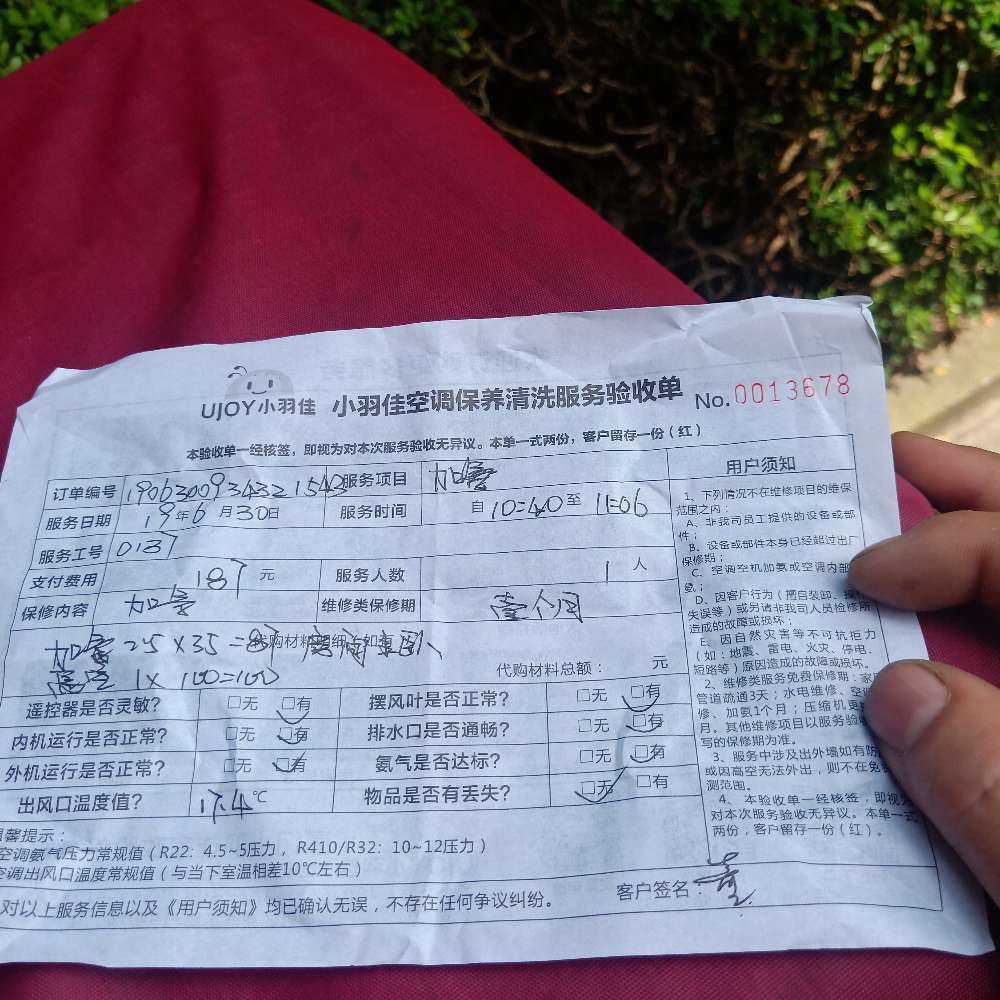 UJOY小羽佳 小羽佳空调保养清洗服务验收单 No.0013678
本验收单一经核签，即视为对本次服务验收无异议。本单一式两份，客户留存一份（红）
订单编号 1906300934321543 服务项目 加
服务日期 19年6月30日 服务时间 自10:40至11:06
服务工号 0137
支付费用 187元 服务人数 1人
保修内容 加 维修类保修期 壹个月
代购材料明细 如
加 25×35=87
1×100=100 代购材料总额： 元
遥控器是否灵敏？ □无 □有 摆风叶是否正常？ □无 □有
内机运行是否正常？ □无 □有 排水口是否通畅？ □无 □有
外机运行是否正常？ □无 □有 氨气是否达标？ □无 □有
出风口温度值？ 17.4℃ 物品是否有丢失？ □无 □有
馨提示：
空调氨气压力常规值（R22：4.5~5压力，R410/R32：10~12压力）
调出风口温度常规值（与当下室温相差10℃左右）
对以上服务信息以及《用户须知》均已确认无误，不存在任何争议纠纷。
客户签名：
用户须知
1、下列情况不在维修项目的维保
范围之内：
A、非我司员工提供的设备或部
件；
B、设备或部件本身已经超过出厂
保修期；
C、空调空机加氨或空调内部
D、因客户行为（擅自装卸、
失误等）或另请非我司人员检修所
造成的故障或损坏；
E、因自然灾害等不可抗拒力
（如：地震、雷电、火灾、停电、
短路等）原因造成的故障或损坏。
2、维修类服务免费保修期：家
管道疏通3天；水电维修、空
修、加氨1个月；压缩机更
月。其他维修项目以服务验收
写的保修期为准。
3、服务中涉及出外墙如有防
或因高空无法外出，则不在免
测范围。
4、本验收单一经核签，即视为
对本次服务验收无异议。本单一式
两份，客户留存一份（红）。